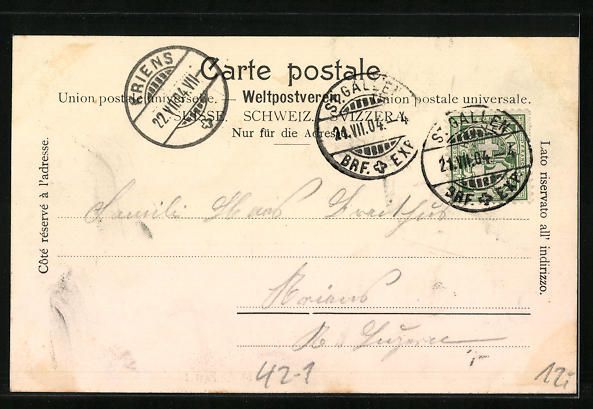 Carte postale.
Union postale universelle. — Weltpostverein. — Union postale universale.
SUISSE. SCHWEIZ. SVIZZERA.
Nur für die Adresse.
KRIENS
22.VII.04.VII-
ST. GALLEN
21.VII.04. - 4
BRF. EXP.
ST. GALLEN
21.VII.04. - 4
BRF. EXP.
Côté réservé à l'adresse.
Lato riservato all' indirizzo.
Familie Hans
Kriens
K. Luzern
42-1